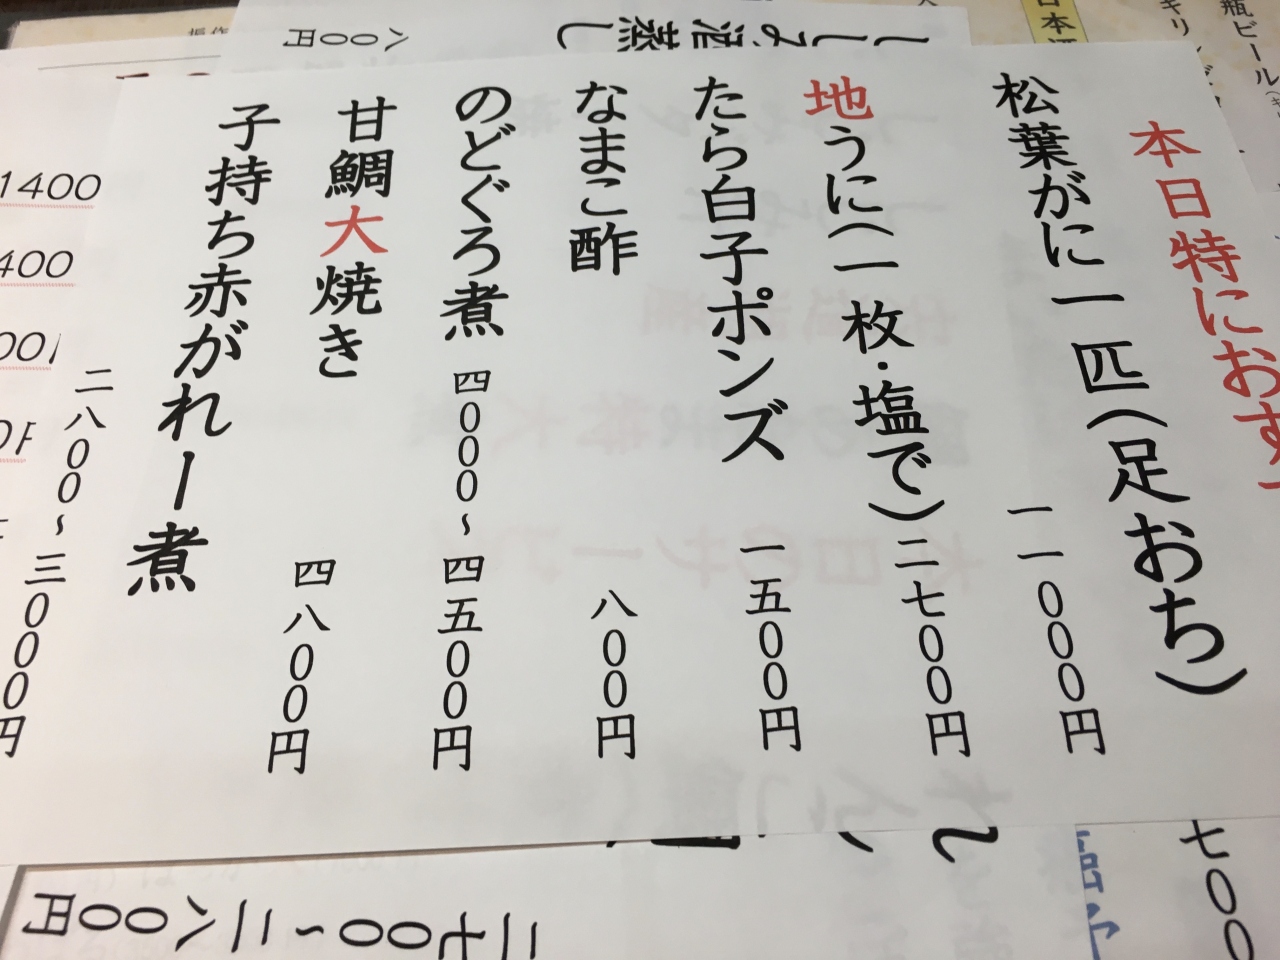 本日特におす
松葉がに一匹(足おち)
一一〇〇〇円
地うに(一枚・塩で)
二七〇〇円
たら白子ポンズ
一五〇〇円
なまこ酢
八〇〇円
のどぐろ煮
四〇〇〇~四五〇〇円
甘鯛大焼き
四八〇〇円
子持ち赤がれー煮
二八〇〇~三〇〇〇円
1400
400
八〇〇円
酒蒸し
日本酒
瓶ビール
キリン
七〇〇
二七〇〇~二八〇〇円